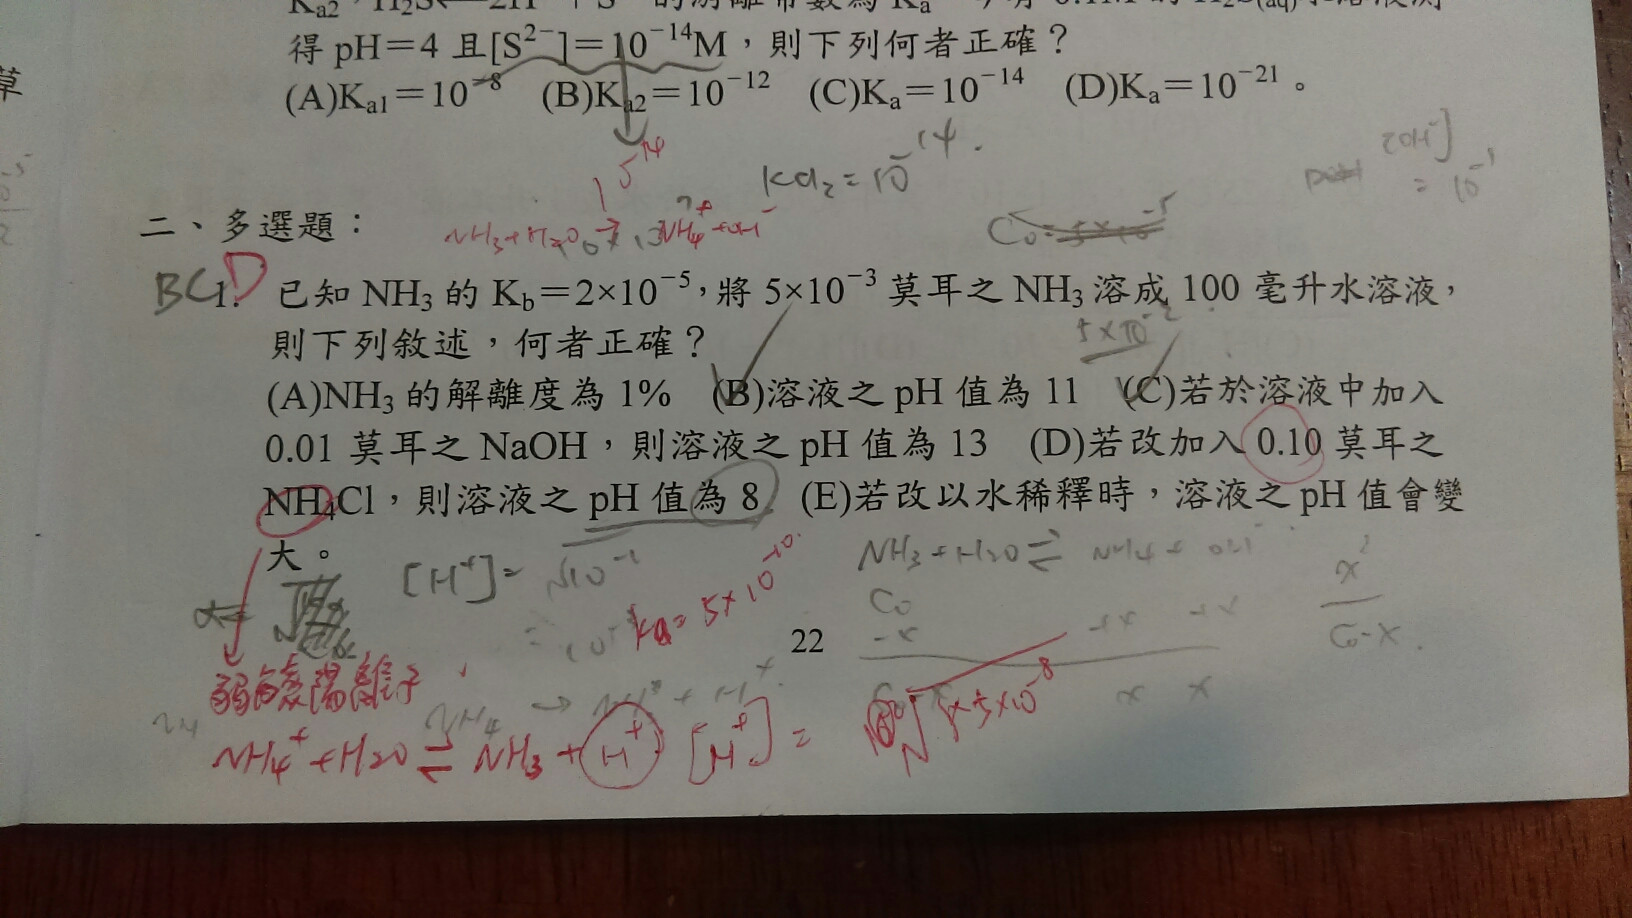 得 pH=4 且[S²⁻]=10⁻¹⁴M，則下列何者正確？
(A)Ka1=10⁻⁸ (B)Ka2=10⁻¹² (C)Ka=10⁻¹⁴ (D)Ka=10⁻²¹。
Ka₂=10⁻¹⁴.
[OH⁻]
=10⁻¹
二、多選題：
NH₃+H₂O
NH₄⁺+OH⁻
BCD
1. 已知 NH₃ 的 Kb=2×10⁻⁵，將 5×10⁻³ 莫耳之 NH₃ 溶成 100 毫升水溶液，
5×10⁻²
則下列敘述，何者正確？
(A)NH₃ 的解離度為 1% (B)溶液之 pH 值為 11 (C)若於溶液中加入
0.01 莫耳之 NaOH，則溶液之 pH 值為 13 (D)若改加入 0.10 莫耳之
NH₄Cl，則溶液之 pH 值為 8 (E)若改以水稀釋時，溶液之 pH 值會變
大。
[H⁺]=
Ka=5×10⁻¹⁰
NH₃+H₂O⇌NH₄+OH
C₀
-x +x +x
x x
x²
C₀-x
22
弱酸陽離子
NH₄⁺+H₂O⇌NH₃+H⁺ [H⁺]=